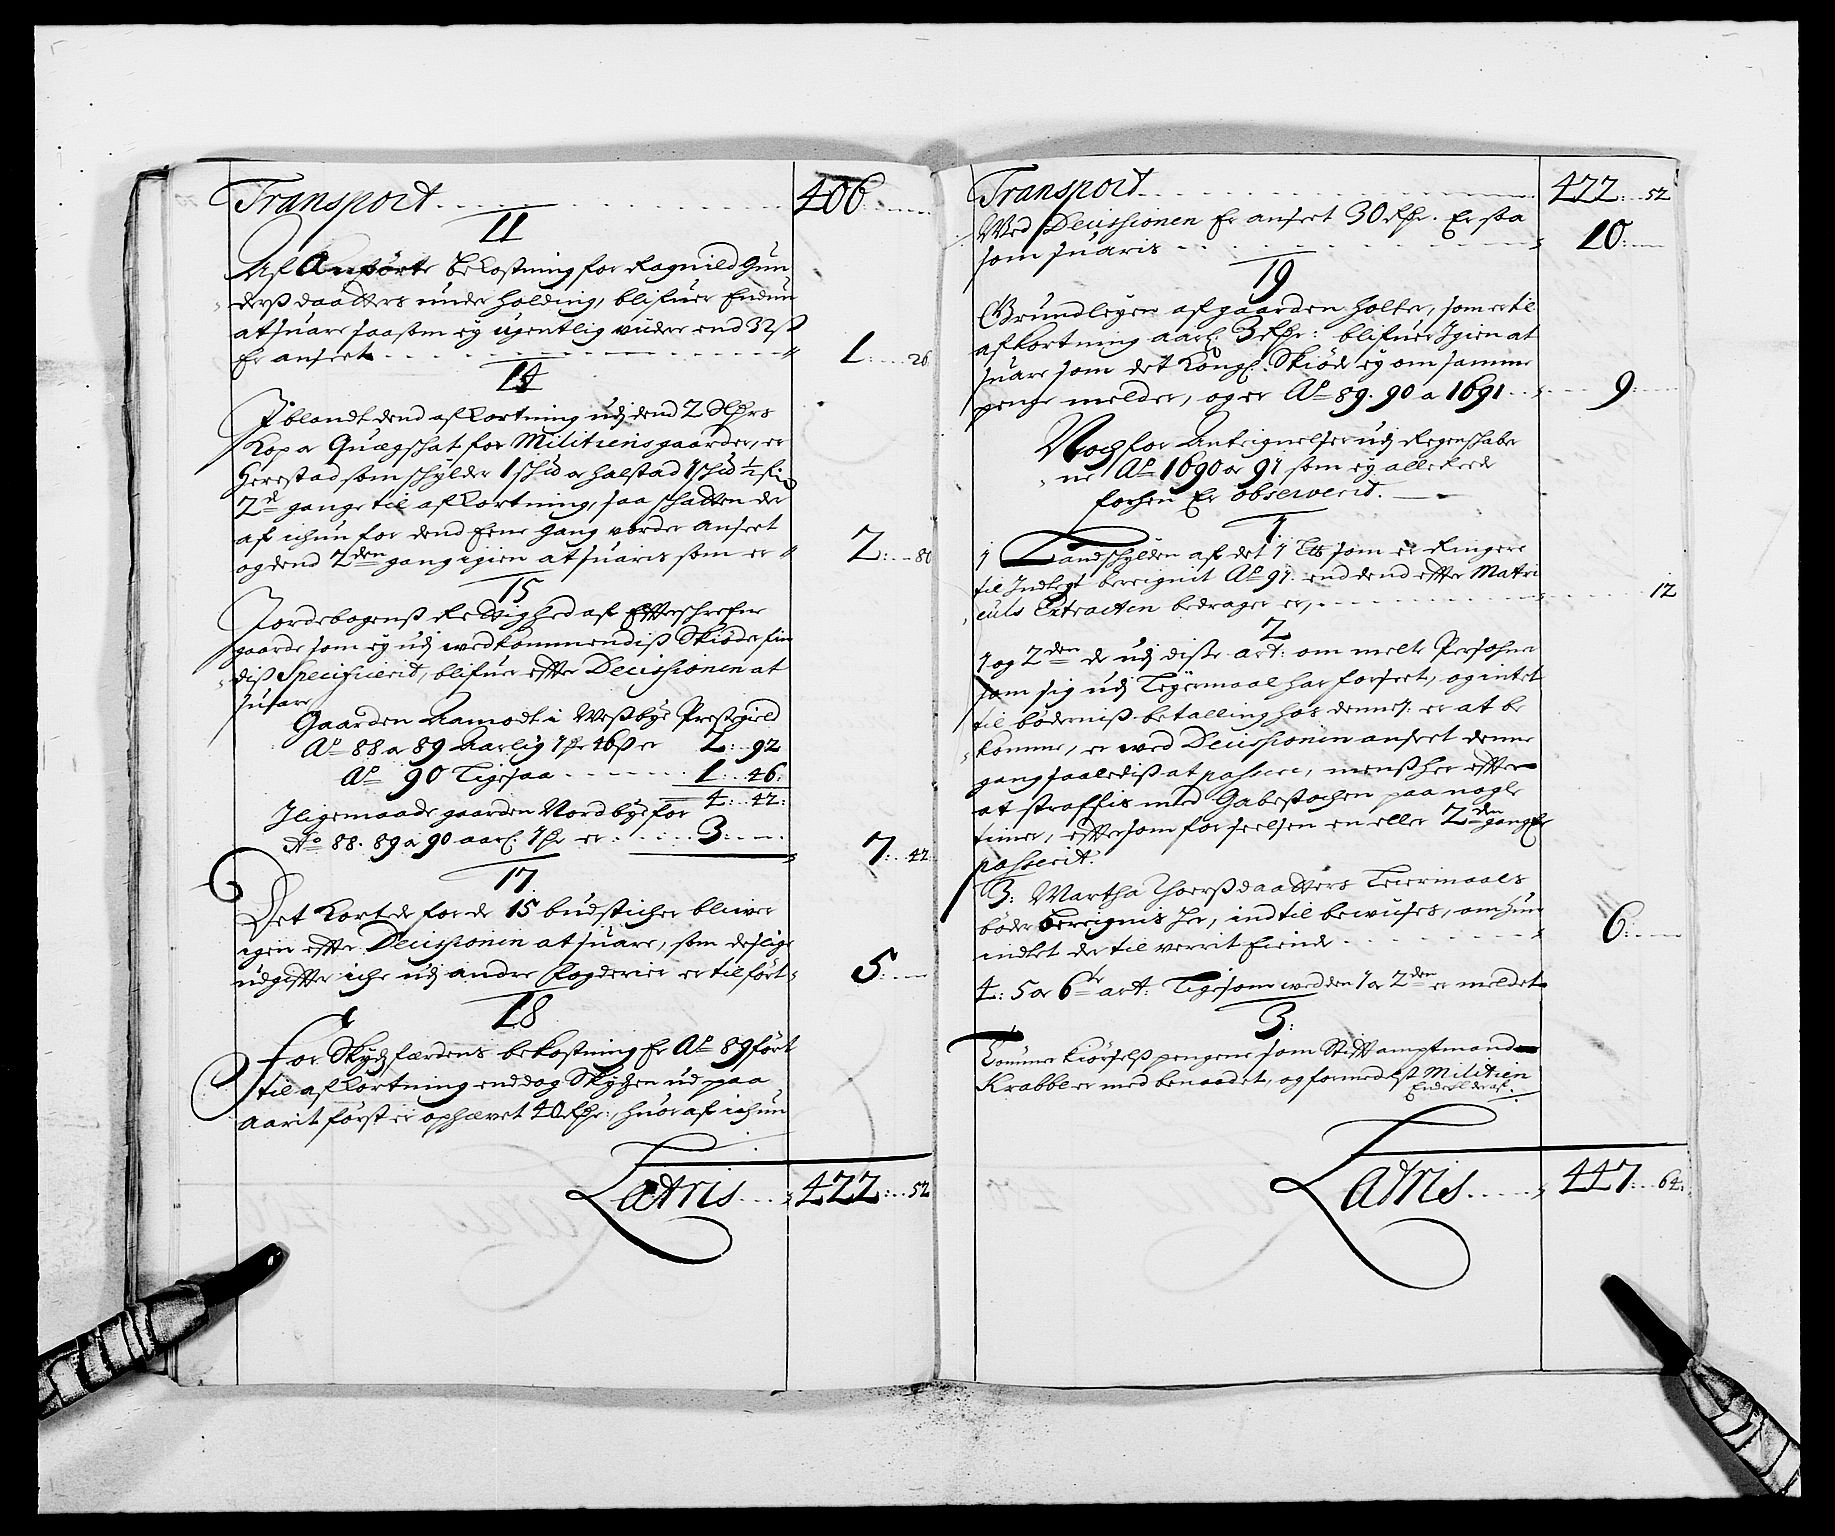 Transport . . . . . 406
11
Af Anførte bekostning for Ragnild Gun-
derß daatters underholding, blifuer Endnu
at suare saasom ey ugentlig videre end 32 ß
Er anseet . . . . . 1: 26
14
Iblandt dend afkortning udj dend 2 Rdlrs
Kop og Quægshat for Militiens gaarder, er
Herrestad som schylder 1 schd og halstad 1 schd ½
2d gange til afkortning, saa schatten der
af ichun for dend Eene gang vorder anseet
og dend 2den gang igien at suaris som er 2: 80
15
Jordebogenß Rettighed af Effterschrefne
gaarde som ey udj wedkommendiß Skiøder fin
diß Specificerit, blifuer effter Decisionen at
suare
Gaarden Aamodt i Weßbye Prestegield
Ao 88 og 89 Aarlig 1 46 ß er 2: 92
Ao 90 Ligesaa . . . . 1: 46:
4: 42:
Iligemaade gaarden Nordbye for
Ao 88. 89 og 90 aarl: 1 er . . . . 3: 7: 42
17
Det Kortede for de 15 budsticher bliver
igien effter Decisionen at suare, som deslige
udgiffter iche udj andre fogderier er tilført 5:
18
For Skydsfærdens bekostning Er Ao 89 ført
til afkortning enddog Skydsen ud paa
aarit først er ophævet 40 Rdr:, huoraf ichun
Latris . . . 422: 52
Transport . . . . . 422: 52
Wed Decisionen Er anseet 30 Rdr. Er saa
som suaris . . . . . 10:
19
Grundleyen af gaarden holter, som er til
afkortning aarl: 3 Rdr: blifuer Igien at
suare som det Kongl: Skiøde ey om samme
penge melder, og er Ao 89. 90 og 1691 . . 9
Noch for Antegnelser udj Regenschaber
ne Ao 1690 og 91 som ey allerede
forhen Er observerit.
1
1 Landschylden af det som er Ringere
til Indtegt beregnit Ao 91. end dend effter Matri
culs Extracten bedrager er, . . . . 12
2
1 og 2den de udj diße art: om melte Persohner
som sig udj Leyermaal har forseet, og intet
til bøderniß betalling hos dennem er at be
komme, er wed Decisionen anseet denne
gang saalediß at passere, menß her effter
at straffis med Gabestochen paa nogle
timer, effter som forseelsen en eller 2den gang Er
passerit.
3: Martha Thoerß daatters Leiermaals
bøder beregnis her, indtil bewises, om hun
indtet der til verrit Eiende . . . . . 6:
4: 5 og 6te art: Ligesom wed den 1 og 2den er meldet
3:
Kiørsels pengene som Stift amptmand
Krabbe er med benaadet, og formedelst Militien
Endeel deraf
Latris . . . . 447: 64: